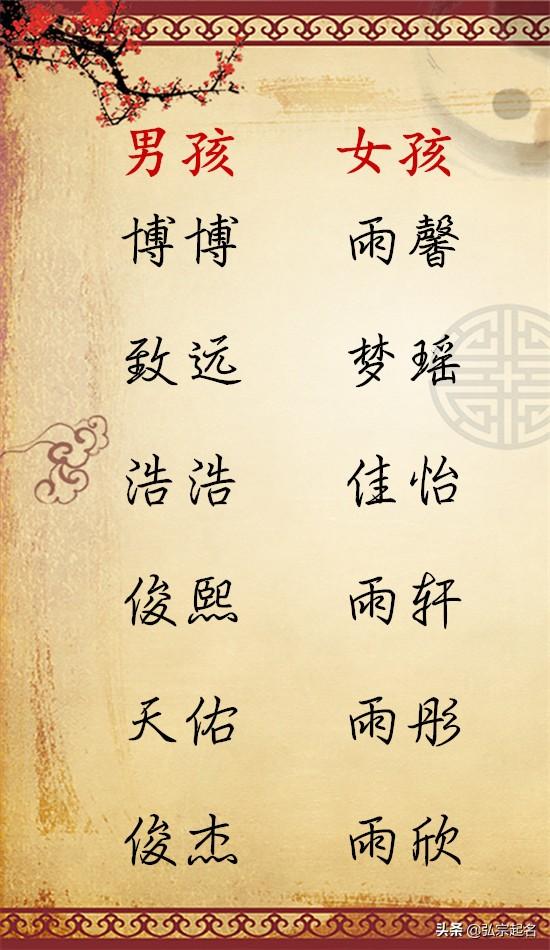 男孩 女孩
博博 雨馨
致远 梦瑶
浩浩 佳怡
俊熙 雨轩
天佑 雨彤
俊杰 雨欣
头条 @弘宗起名